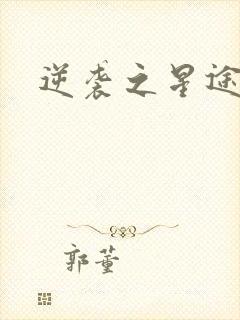 逆袭之星途
郭董